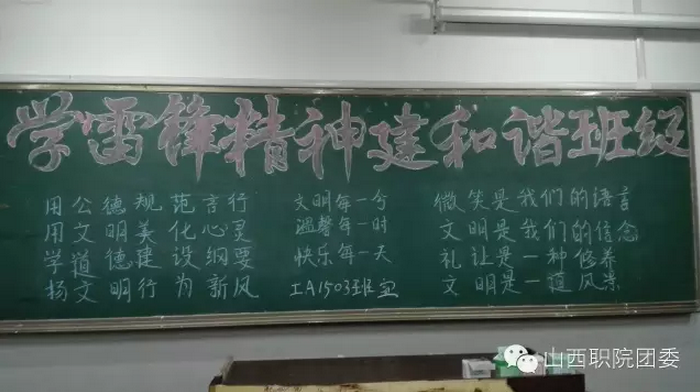 学雷锋精神建和谐班级
用公德规范言行
用文明美化心灵
学道德建设纲要
扬文明行为新风
文明每一分
温馨每一时
快乐每一天
工A1503班宣
微笑是我们的语言
文明是我们的信念
礼让是一种修养
文明是一道风景
山西职院团委